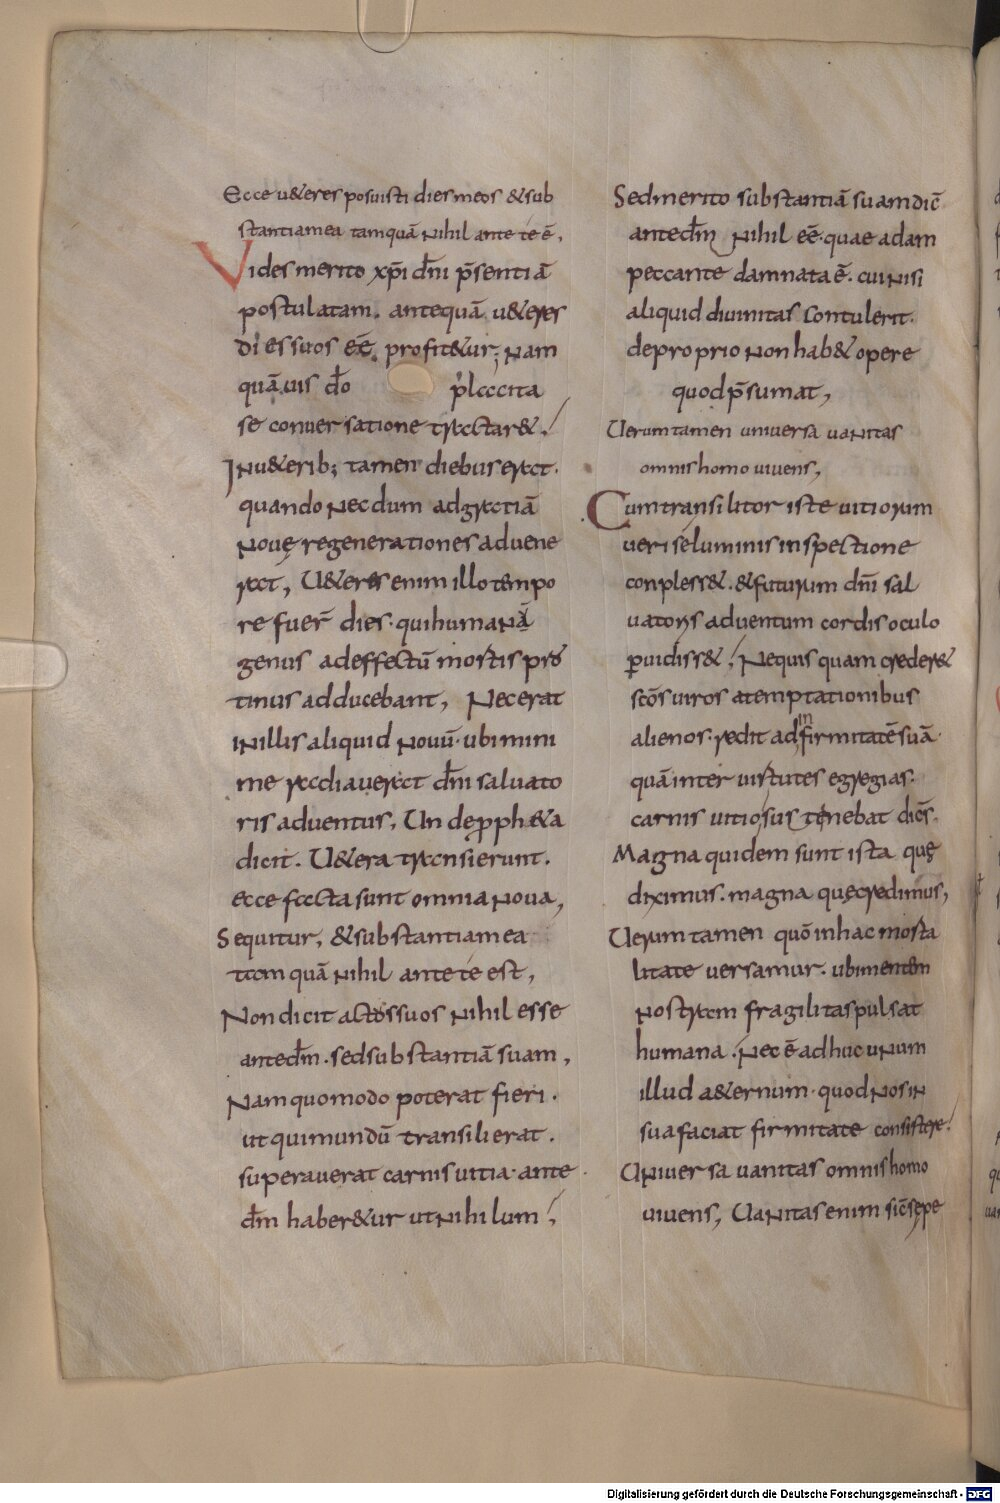 Ecce u&eres posuisti dies meos & sub
stantia mea tamquā nihil ante te ē,
Vides merito xp̄i dn̄i p̄sentiā
postulatam. antequā u&eres
dies suos eē, profit&ur; Nam
quāuis do placita
se conuersatione tractar&;
Inu&erib; tamen diebus erat.
quando necdum ad gratiā
nouę regenerationes aduene
rat, U&eres enim illo tempo
re fuer̄ dies. qui humanā
genus ad effectū mortis pro
tinus adducebant, Nec erat
in illis aliquid nouū. ubi mini
me radiauerat dn̄i saluato
ris aduentus, Unde ꝓph&a
dicit. U&era transierunt.
ecce facta sunt omnia noua,
Sequitur, & substantia mea
tamquā nihil ante te est,
Non dicit actos suos nihil esse
ante dm̄. sed substantiā suam,
Nam quomodo poterat fieri.
ut qui mundū transilierat.
superauerat carnis uitia. ante
dm̄ haber&ur ut nihilum;
Sed merito substantiā suam dic̄
ante dm̄ nihil eē. quae adam
peccante damnata ē. cui nisi
aliquid diuinitas contulerit.
de proprio non hab& opere
quod p̄sumat,
Uerumtamen uniuersa uanitas
omnis homo uiuens,
Cum transilitor iste uitiorum
ueri se luminis inspectione
conpless&. & futurum dn̄i sal
uatoris aduentum cordis oculo
ꝑuidiss&; Nequisquam creder&
scōs uiros a temptationibus
alienos. redit ad in firmitatē suā.
quā inter uirtutes egregias.
carnis uitiosus tenebat dic̄s.
Magna quidem sunt ista quę
diximus. magna quę credimus,
Uerum tamen quō in hac morta
litate uersamur. ubi mentem
nostram fragilitas pulsat
humana. Nec ē adhuc unum
illud a&ernum. quod nos in
sua faciat firmitate consistere.
Uniuersa uanitas omnis homo
uiuens, Uanitas enim sic̄ sepe
Digitalisierung gefördert durch die Deutsche Forschungsgemeinschaft - DFG